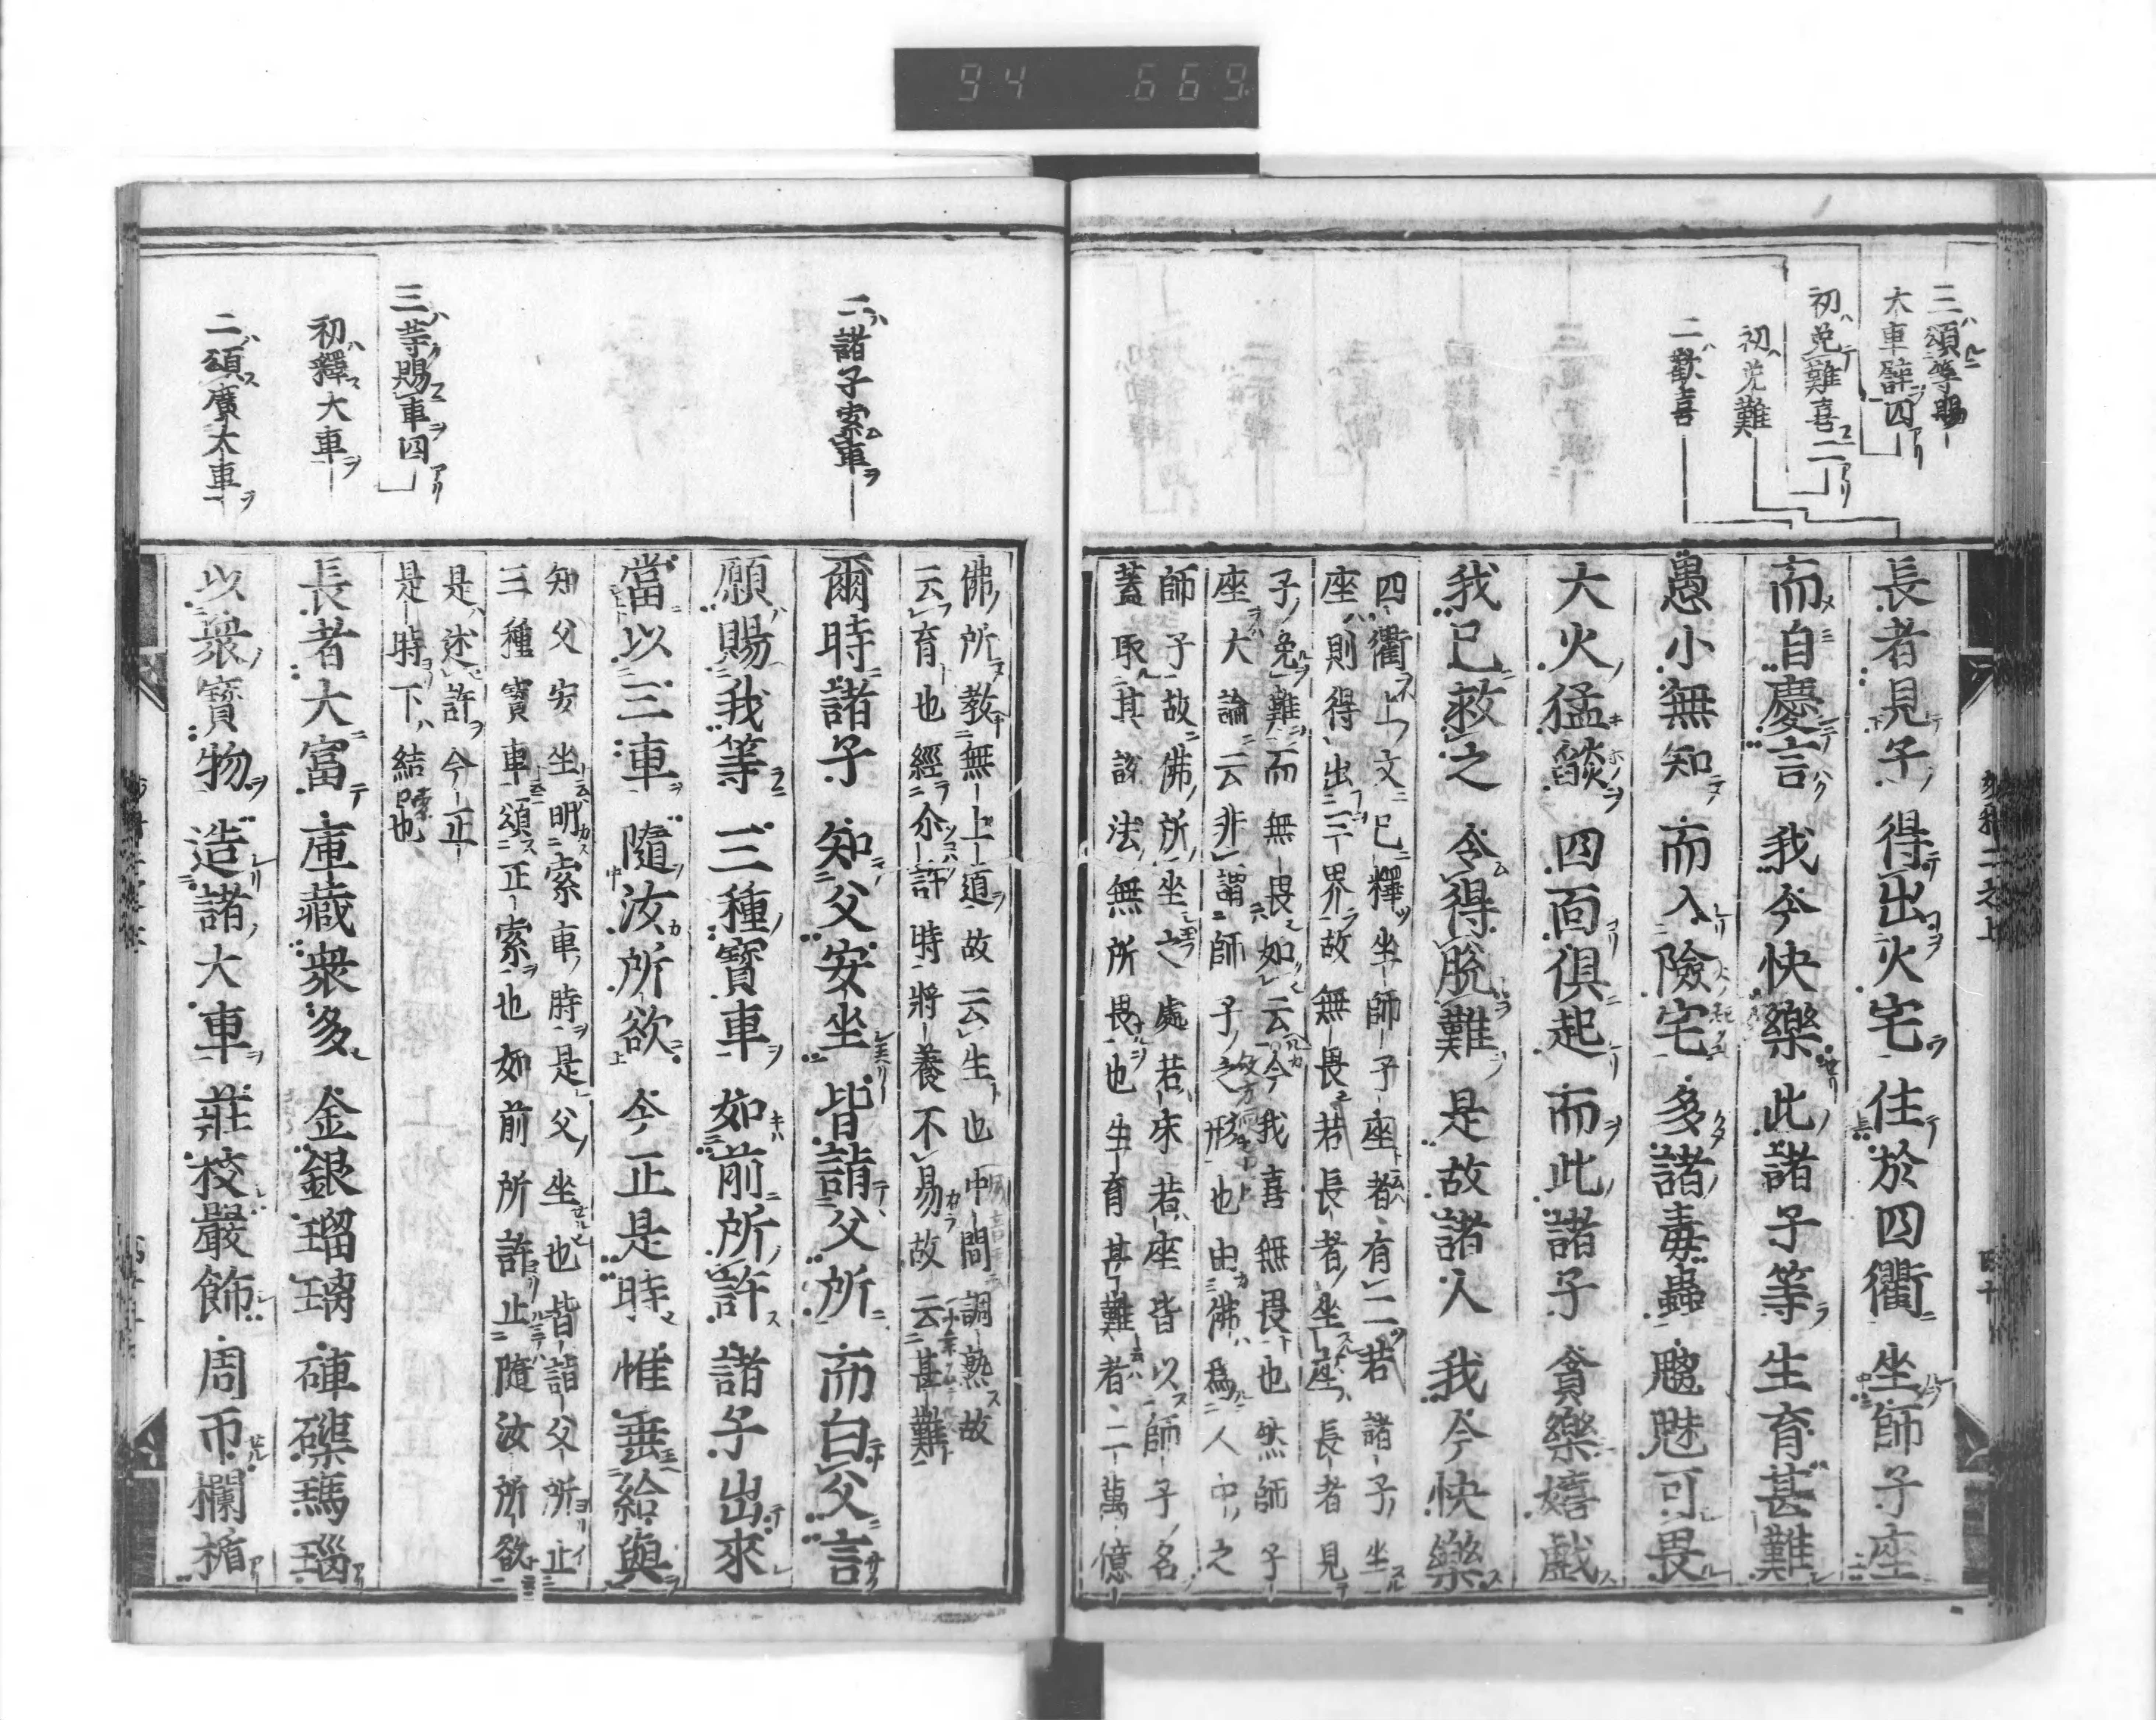 94 669
三頌等賜
大車譬四
初免難喜二
初免難
二歡喜
長者見子 得出火宅 住於四衢 坐師子座
而自慶言 我今快樂 此諸子等 生育甚難
愚小無知 而入險宅 多諸毒蟲 魑魅可畏
大火猛燄 四面俱起 而此諸子 貪樂嬉戲
我已救之 令得脫難 是故諸人 我今快樂
四衢上文已釋坐師子座者有二若諸子坐
座則得出三界故無畏若長者坐座長者見
子免難而無畏如云今我喜無畏也然師子
座大論云非謂師子之形也由佛為人中之
師子故佛所坐之處若床若座皆以師子名
蓋取其說法無所畏也生育甚難者二萬億
佛所教無上道故云生也中間調熟故
云育也經尒許時將養不易故云甚難
二諸子索車
爾時諸子 知父安坐 皆詣父所 而白父言
願賜我等 三種寶車 如前所許 諸子出來
當以三車 隨汝所欲 今正是時 惟垂給與
知父安坐明索車時是父坐也皆詣父所止
三種寶車頌正索也如前所許止隨汝所欲
是述許今正
是時下結索也
三等賜車四
初釋大車
二頌廣大車
長者大富 庫藏衆多 金銀瑠璃 硨磲瑪瑙
以衆寶物 造諸大車 莊校嚴飾 周帀欄楯